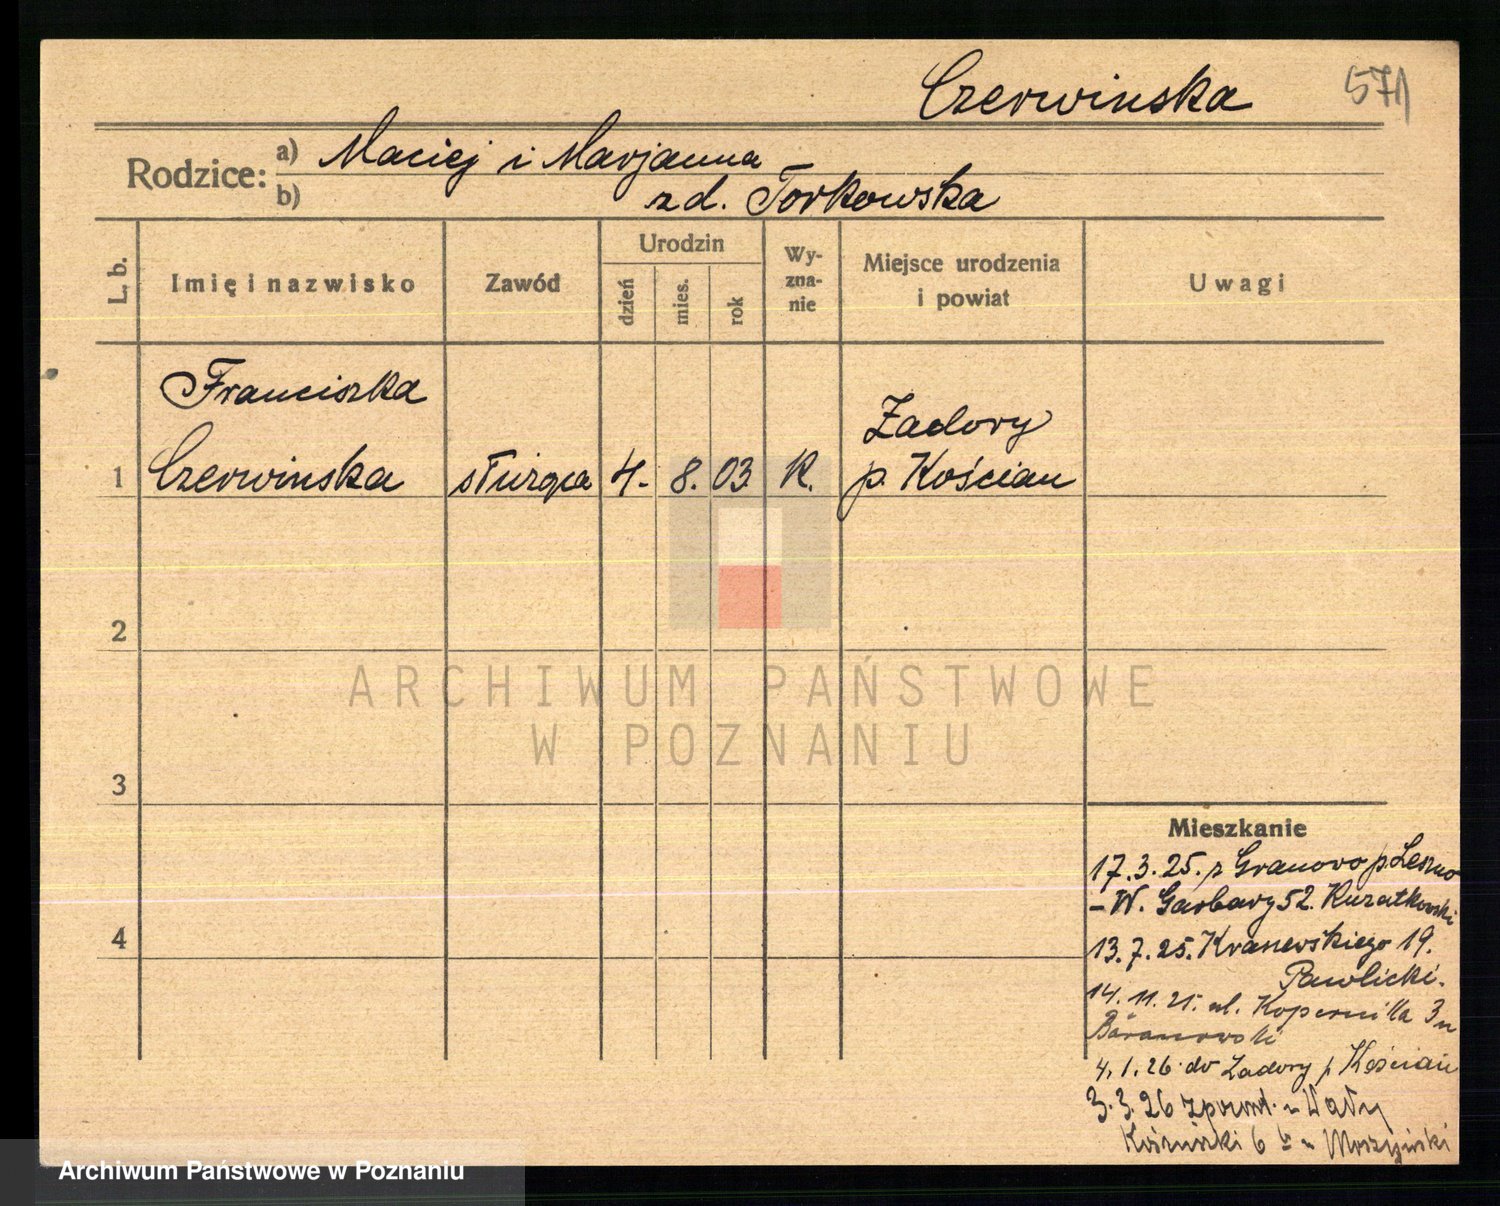 Czerwinska 571
Rodzice:
a) Maciej i Marjanna
b) zd. Torkowska
L. b.
Imię i nazwisko
Zawód
Urodzin
dzień
mies.
rok
Wy-
zna-
nie
Miejsce urodzenia
i powiat
Uwagi
Franciszka
Zadory
1 Czerwinska służąca 4. 8. 03 K. p. Kościan
2
3
4
ARCHIWUM PAŃSTWOWE
W POZNANIU
Mieszkanie
17.3.25. z Granowo p. Leszno
- W. Garbary 52. Kuratkowski
13.7.25. Kraszewskiego 19.
Pawlicki.
14.11.25. ul. Kopernika 3
Baranowski
4.1.26 do Zadory p Kościan
3.3.26 z powrt. Wały
6 u Moszyński
Archiwum Państwowe w Poznaniu